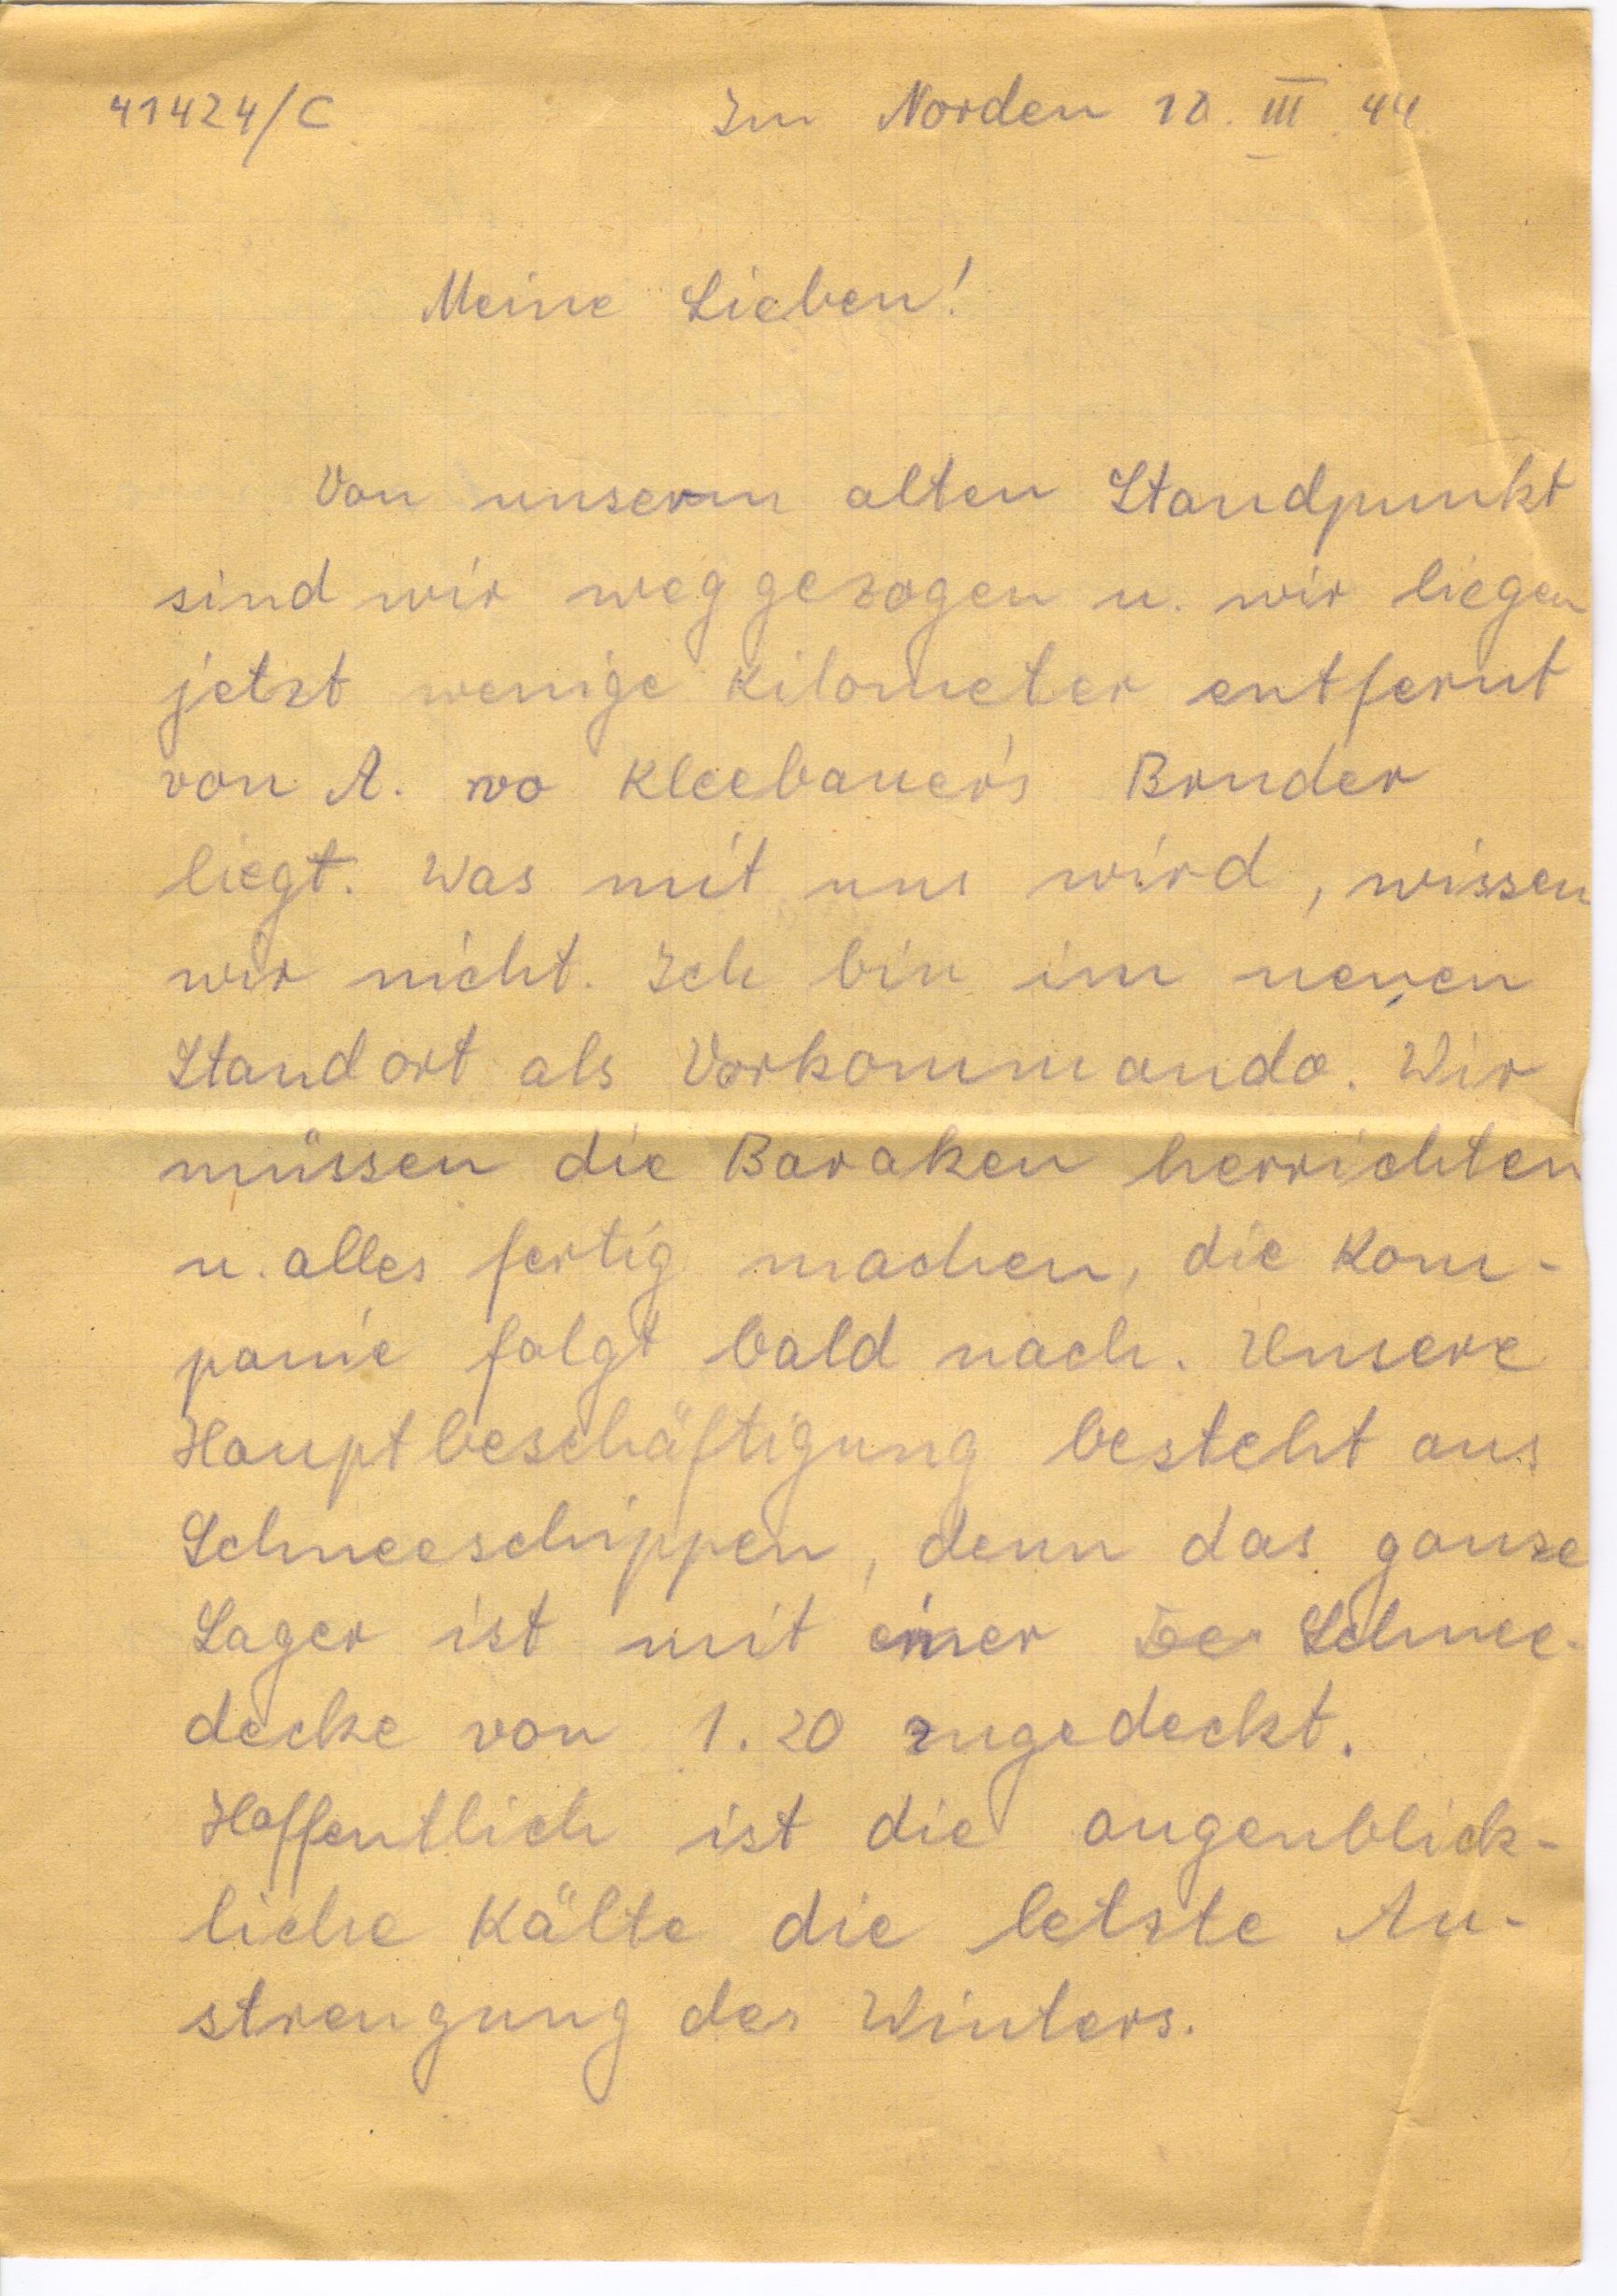 41424/C Im Norden 10. III. 44.
Meine Lieben!
Von unserm alten Standpunkt
sind wir weggezogen u. wir liegen
jetzt wenige Kilometer entfernt
von A. wo Kleebauer's Bruder
liegt. Was mit uns wird, wissen
wir nicht. Ich bin im neuen
Standort als Vorkommando. Wir
müssen die Baraken herrichten
u. alles fertig machen, die Kom-
panie folgt bald nach. Unsere
Hauptbeschäftigung besteht aus
Schneeschippen, denn das ganze
Lager ist mit einer Schnee-
decke von 1.20 zugedeckt.
Hoffentlich ist die augenblick-
liche Kälte die letzte An-
strengung des Winters.